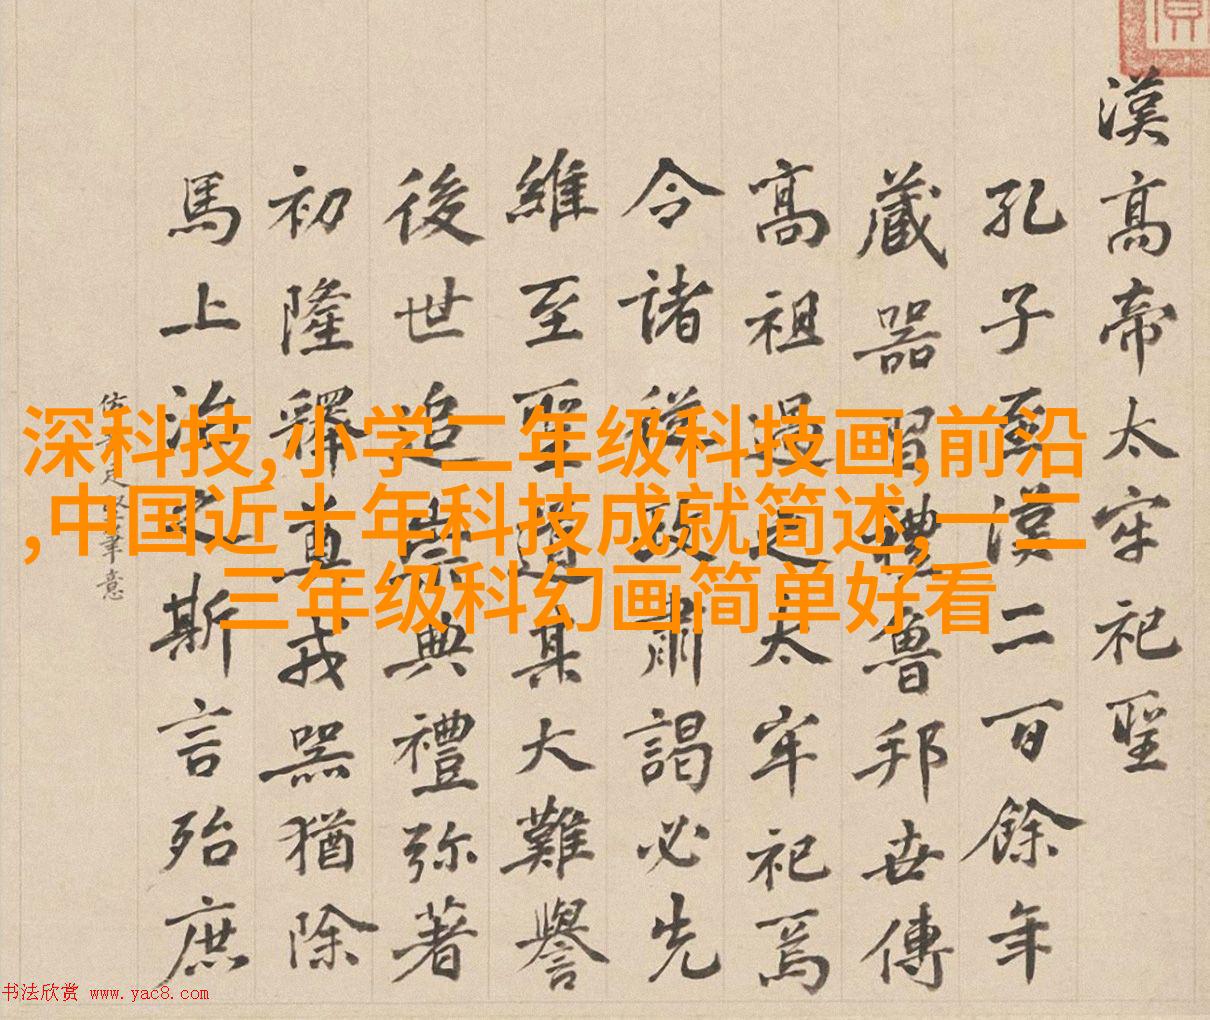 漢高帝太牢祀聖
孔子至漢二百餘年
藏器習禮魯邦世傳
高祖過之太牢祀焉
令諸從政肅謁必先
維至聖道其大難譽
後世追崇典禮弥著
初隆釋尊戎器猶除
馬上治之斯言殆庶
筆意
深科技,小学二年级科技画,前沿
,中国近十年科技成就简述,一二
三年级科幻画简单好看
书法欣赏 www.yac8.com